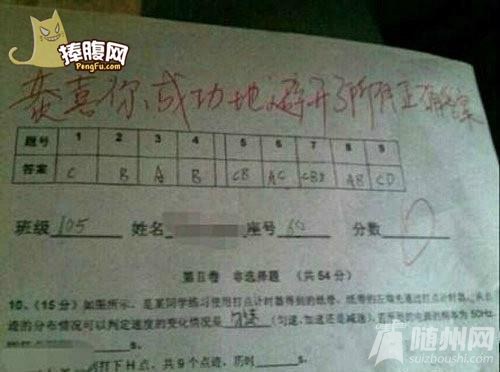 捧腹网
PengFu.com
恭喜你,成功地避开了所有正确答案
题号 1 2 3 4 5 6 7 8 9
答案 C B A B CB AC CBD AB CD
班级 105 姓名 座号 60 分数 0
第Ⅱ卷 非选择题 (共54分)
10、(15分)如图所示,是某同学练习使用打点计时器得到的纸带,纸带的左端先通过打点计时器,从点
迹的分布情况可以判定速度的变化情况是 匀速 (匀速、加速还是减速),若所用的电源的频率为50Hz,
打下H点,共9个点迹,历时 s。
s。
随州网
suizhoushi.com